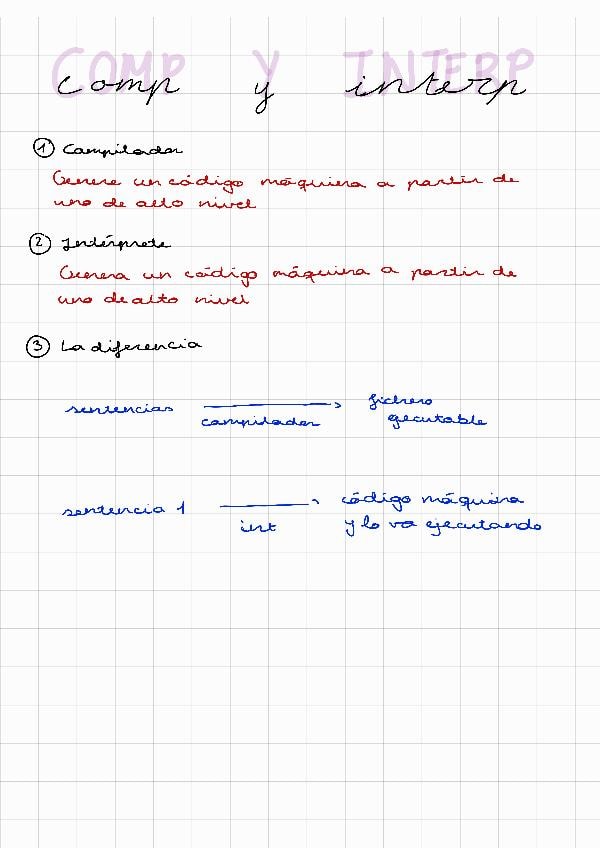 COMP Y INTERP
Comp y interp
1 Compilador
Genera un código máquina a partir de
uno de alto nivel
2 Intérprete
Genera un código máquina a partir de
uno de alto nivel
3 La diferencia
sentencias → fichero
compilador ejecutable
sentencia 1 → código máquina
int y lo va ejecutando